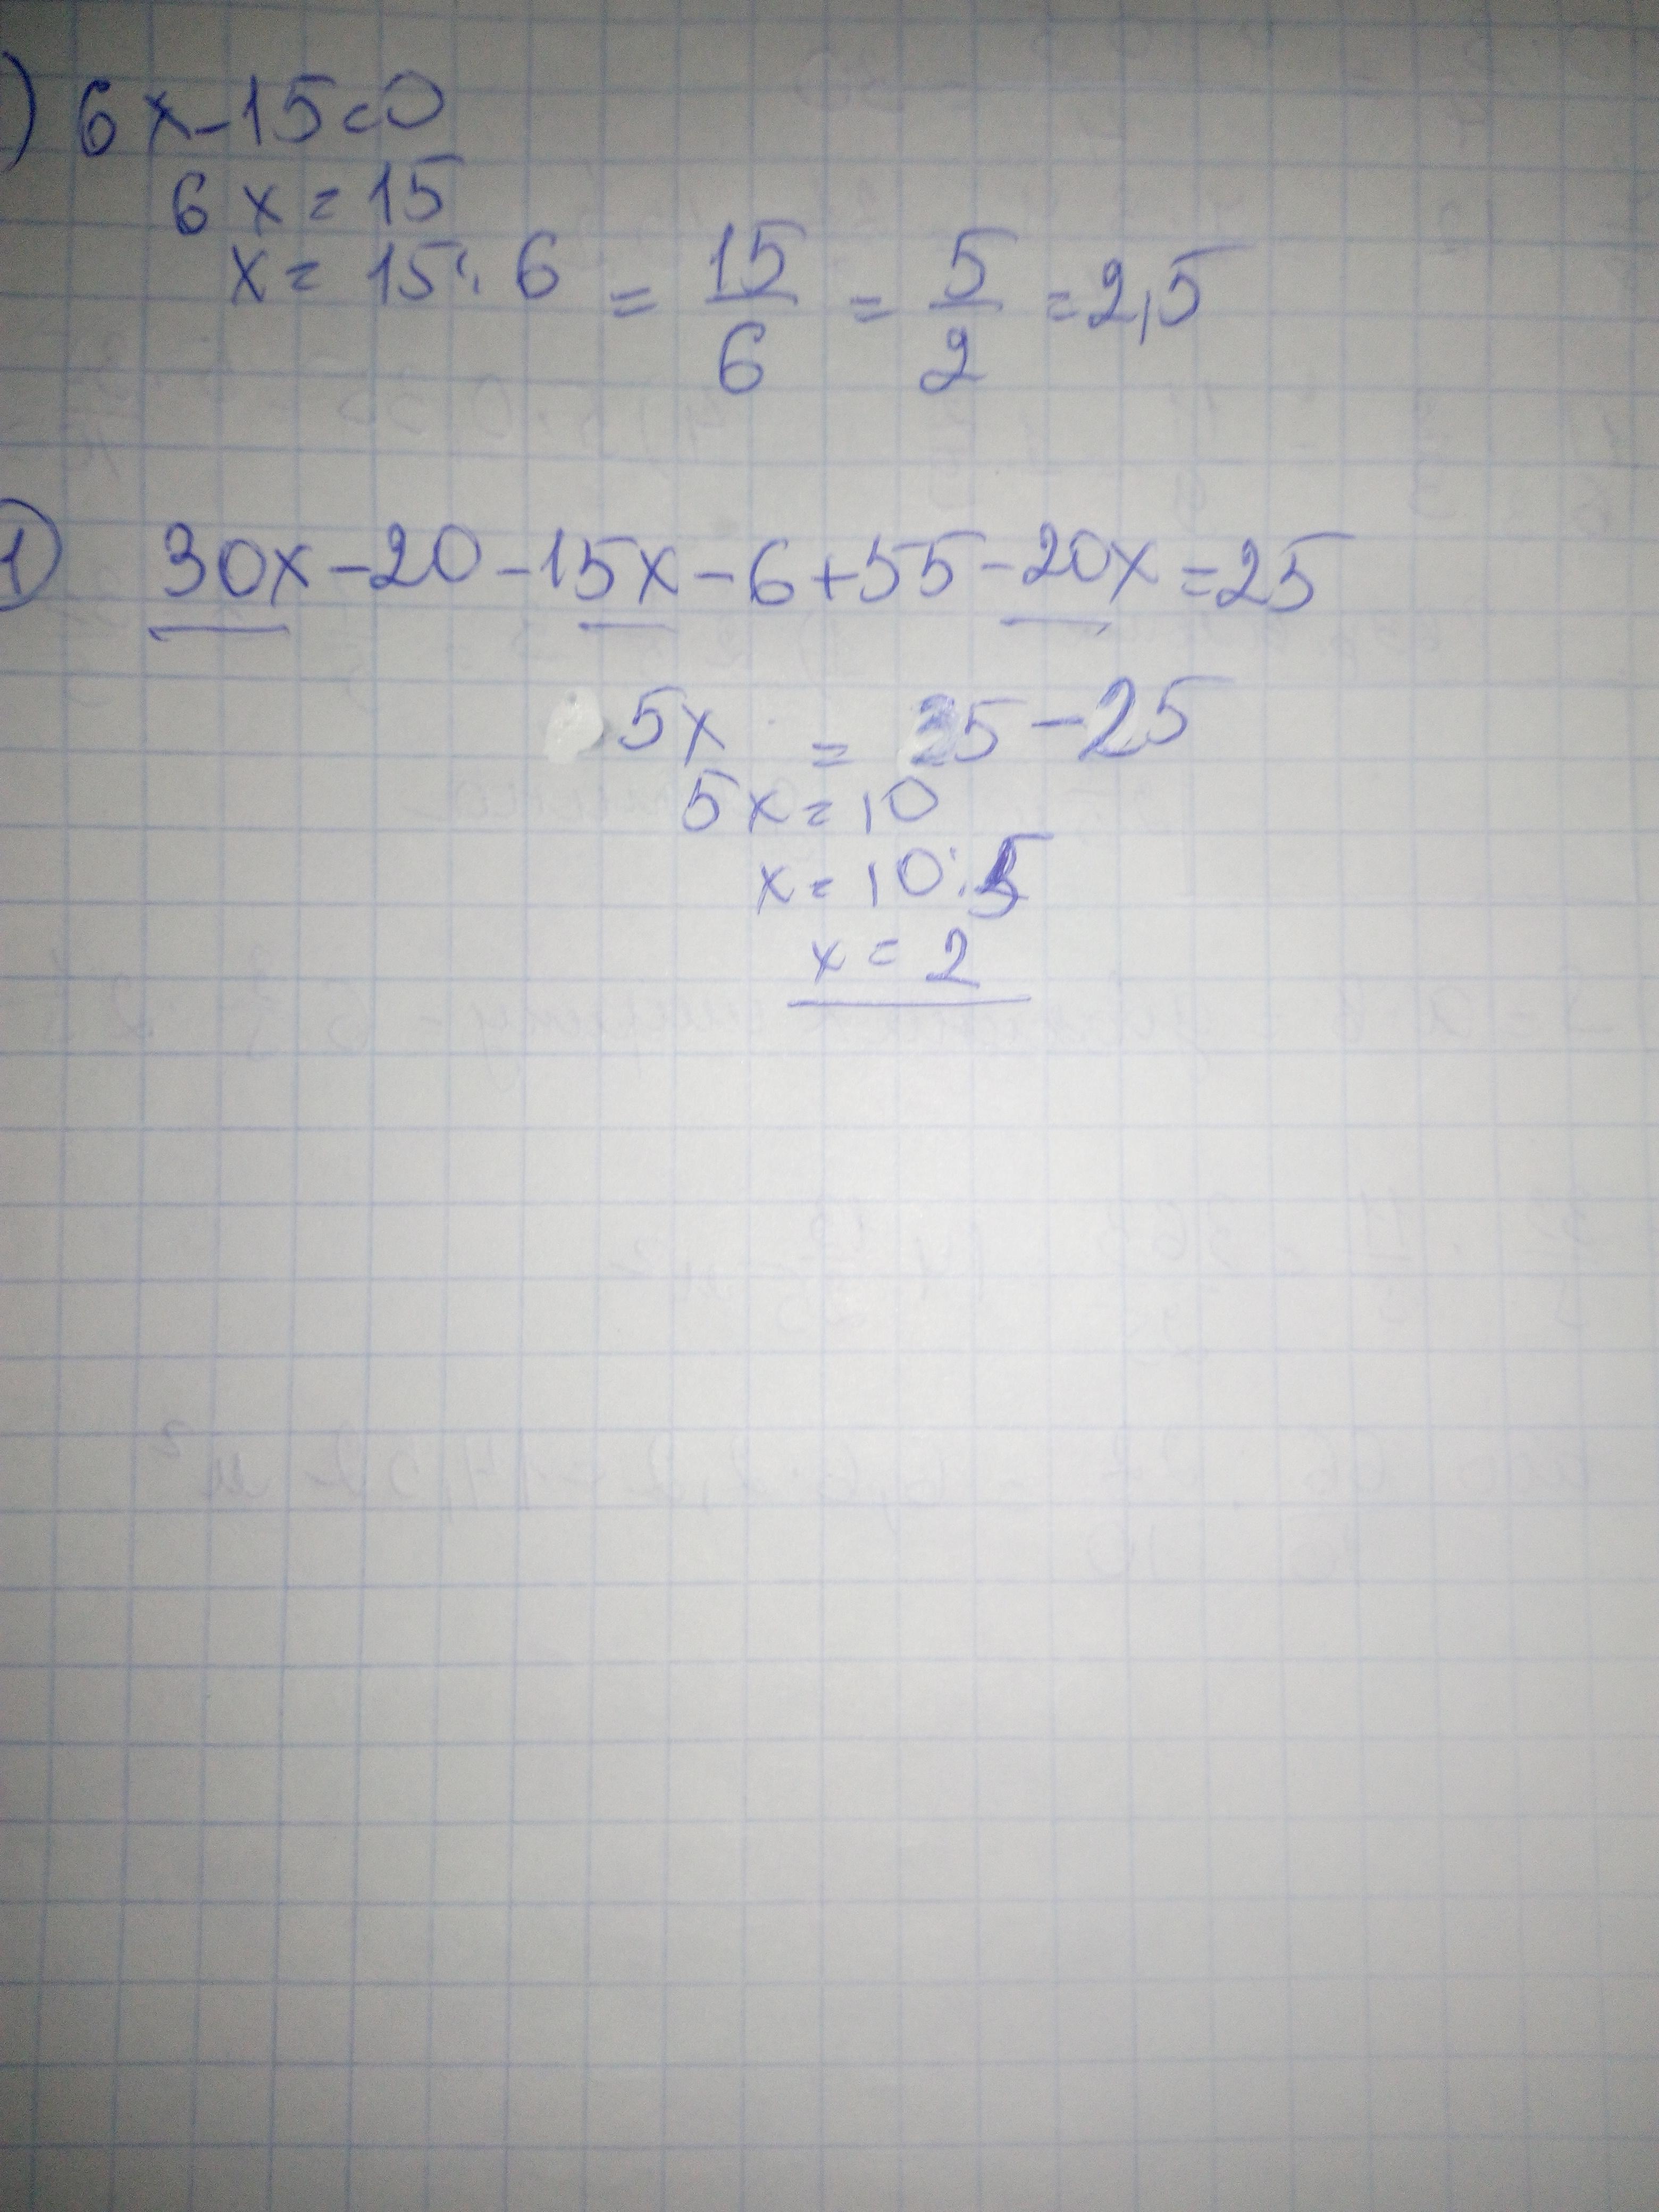 ) 6x-15=0
6x=15
x=15:6 = 15/6 = 5/2 =2,5
1) 30x-20-15x-6+55-20x=25
5x = 35-25
5x=10
x=10:5
x=2